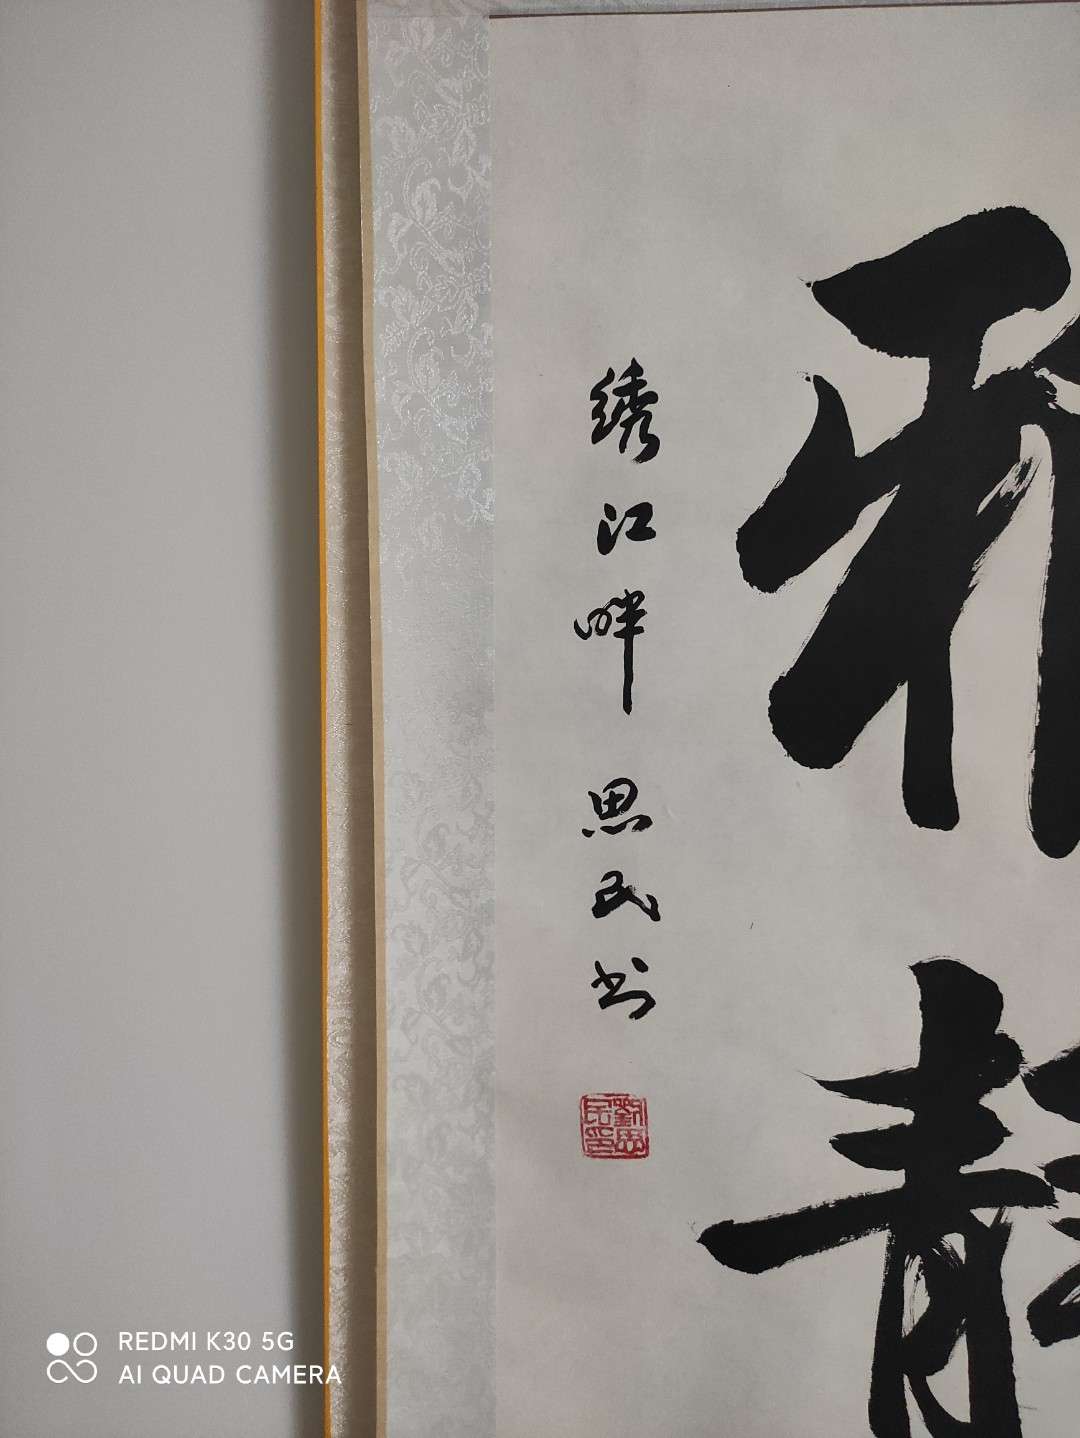 雅
静
绣江畔思民书
劉思民印
REDMI K30 5G
AI QUAD CAMERA